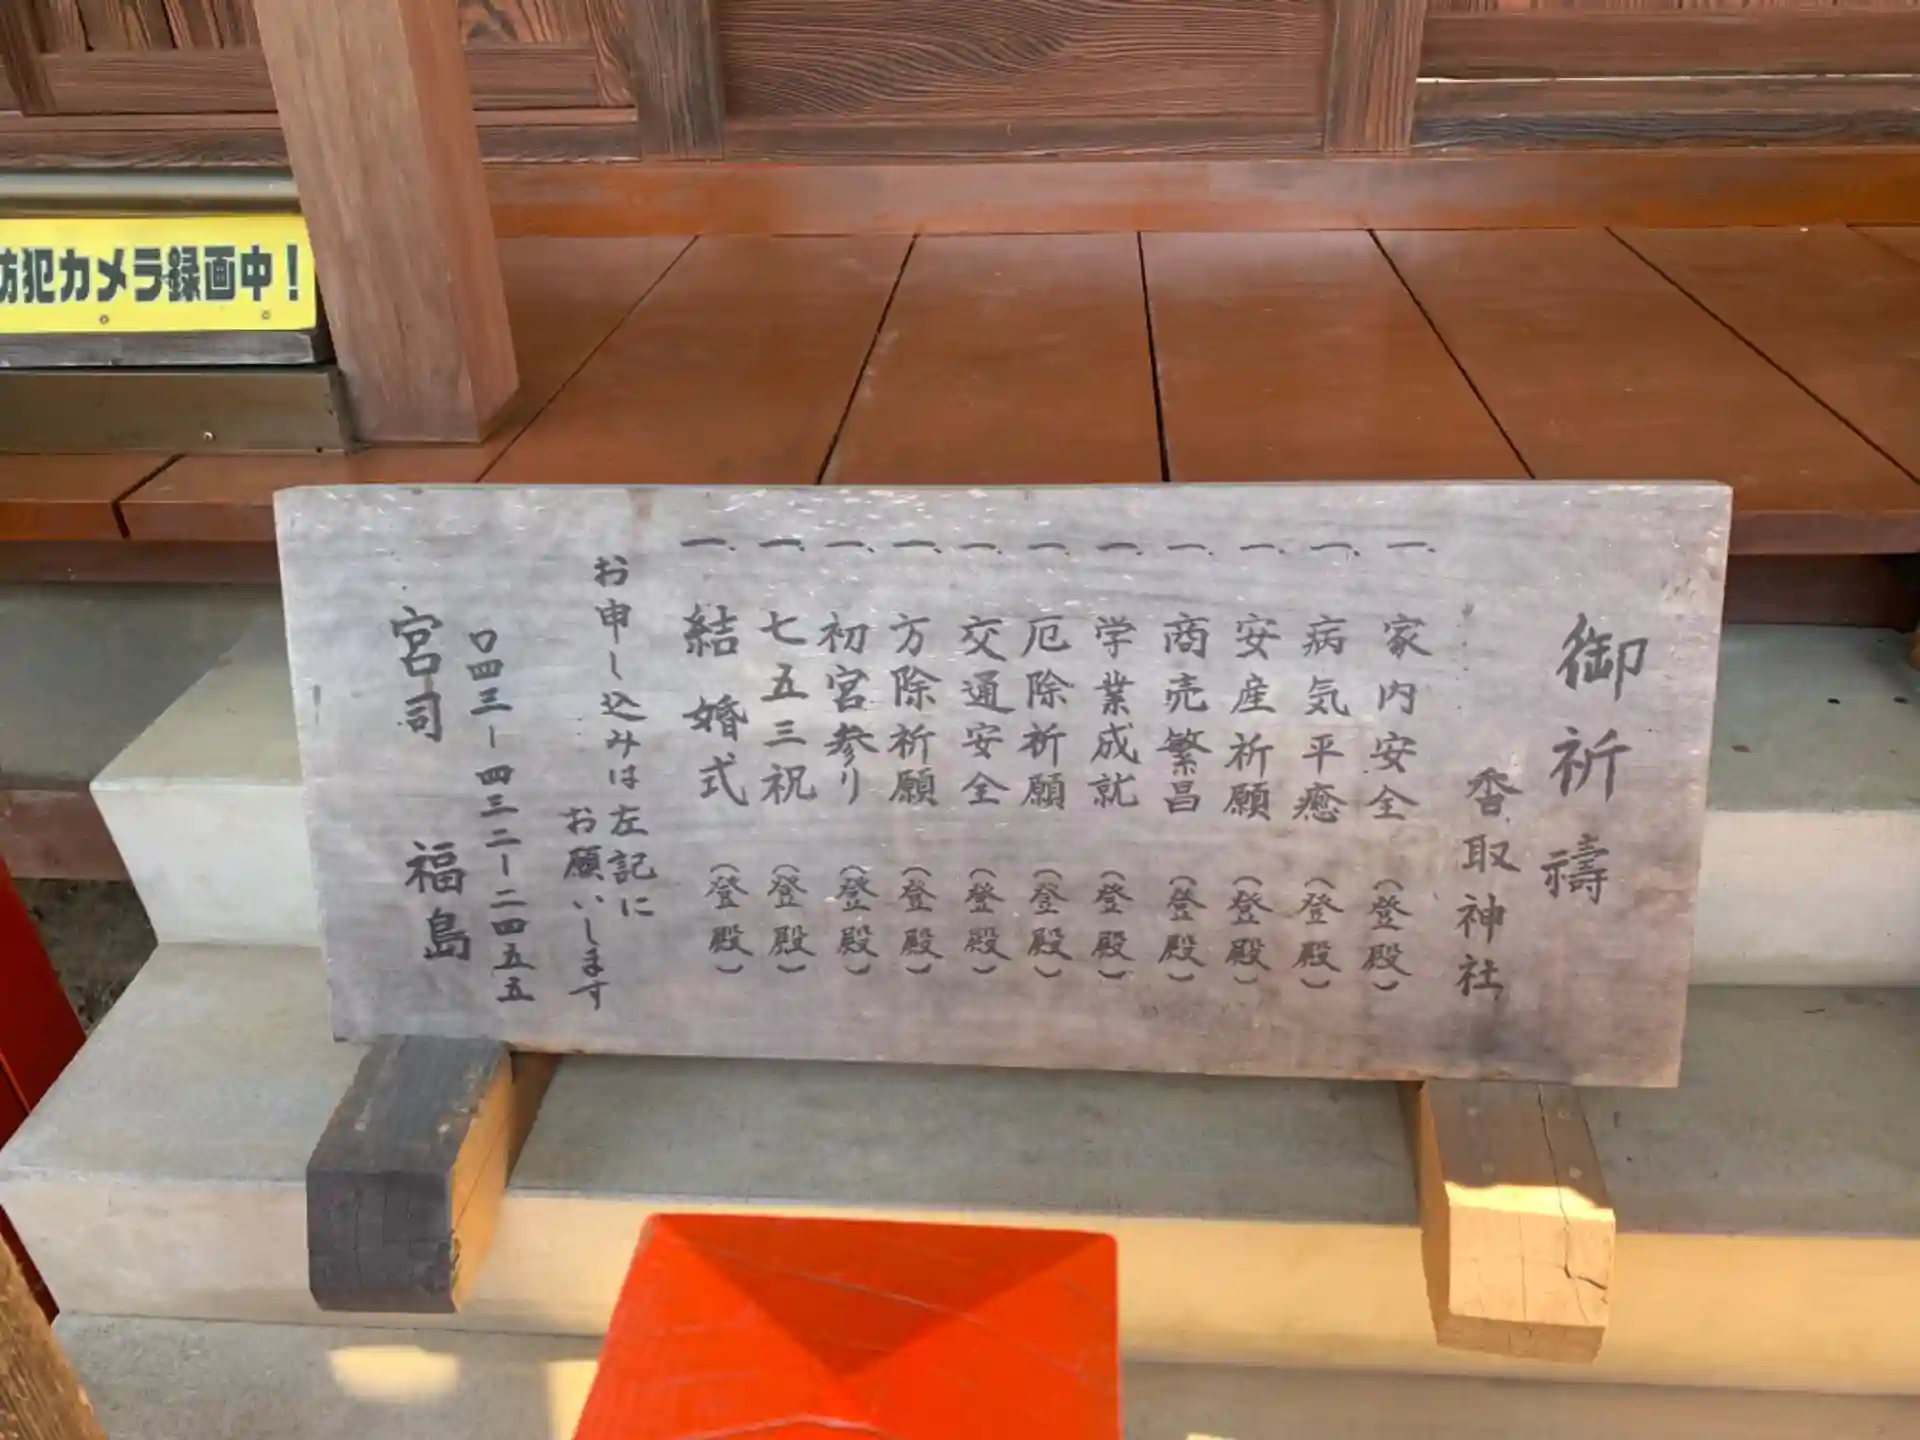 御祈祷
香取神社
一、家内安全（登殿）
一、病気平癒（登殿）
一、安産祈願（登殿）
一、商売繁昌（登殿）
一、学業成就（登殿）
一、厄除祈願（登殿）
一、交通安全（登殿）
一、方除祈願（登殿）
一、初宮参り（登殿）
一、七五三祝（登殿）
一、結婚式（登殿）
お申し込みは左記に
お願いします
〇四三－四三二－二四五五
宮司 福島
防犯カメラ録画中！